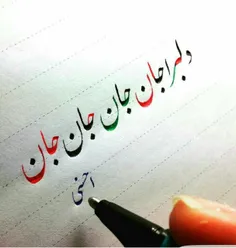 دلبرا جان جان جان جان